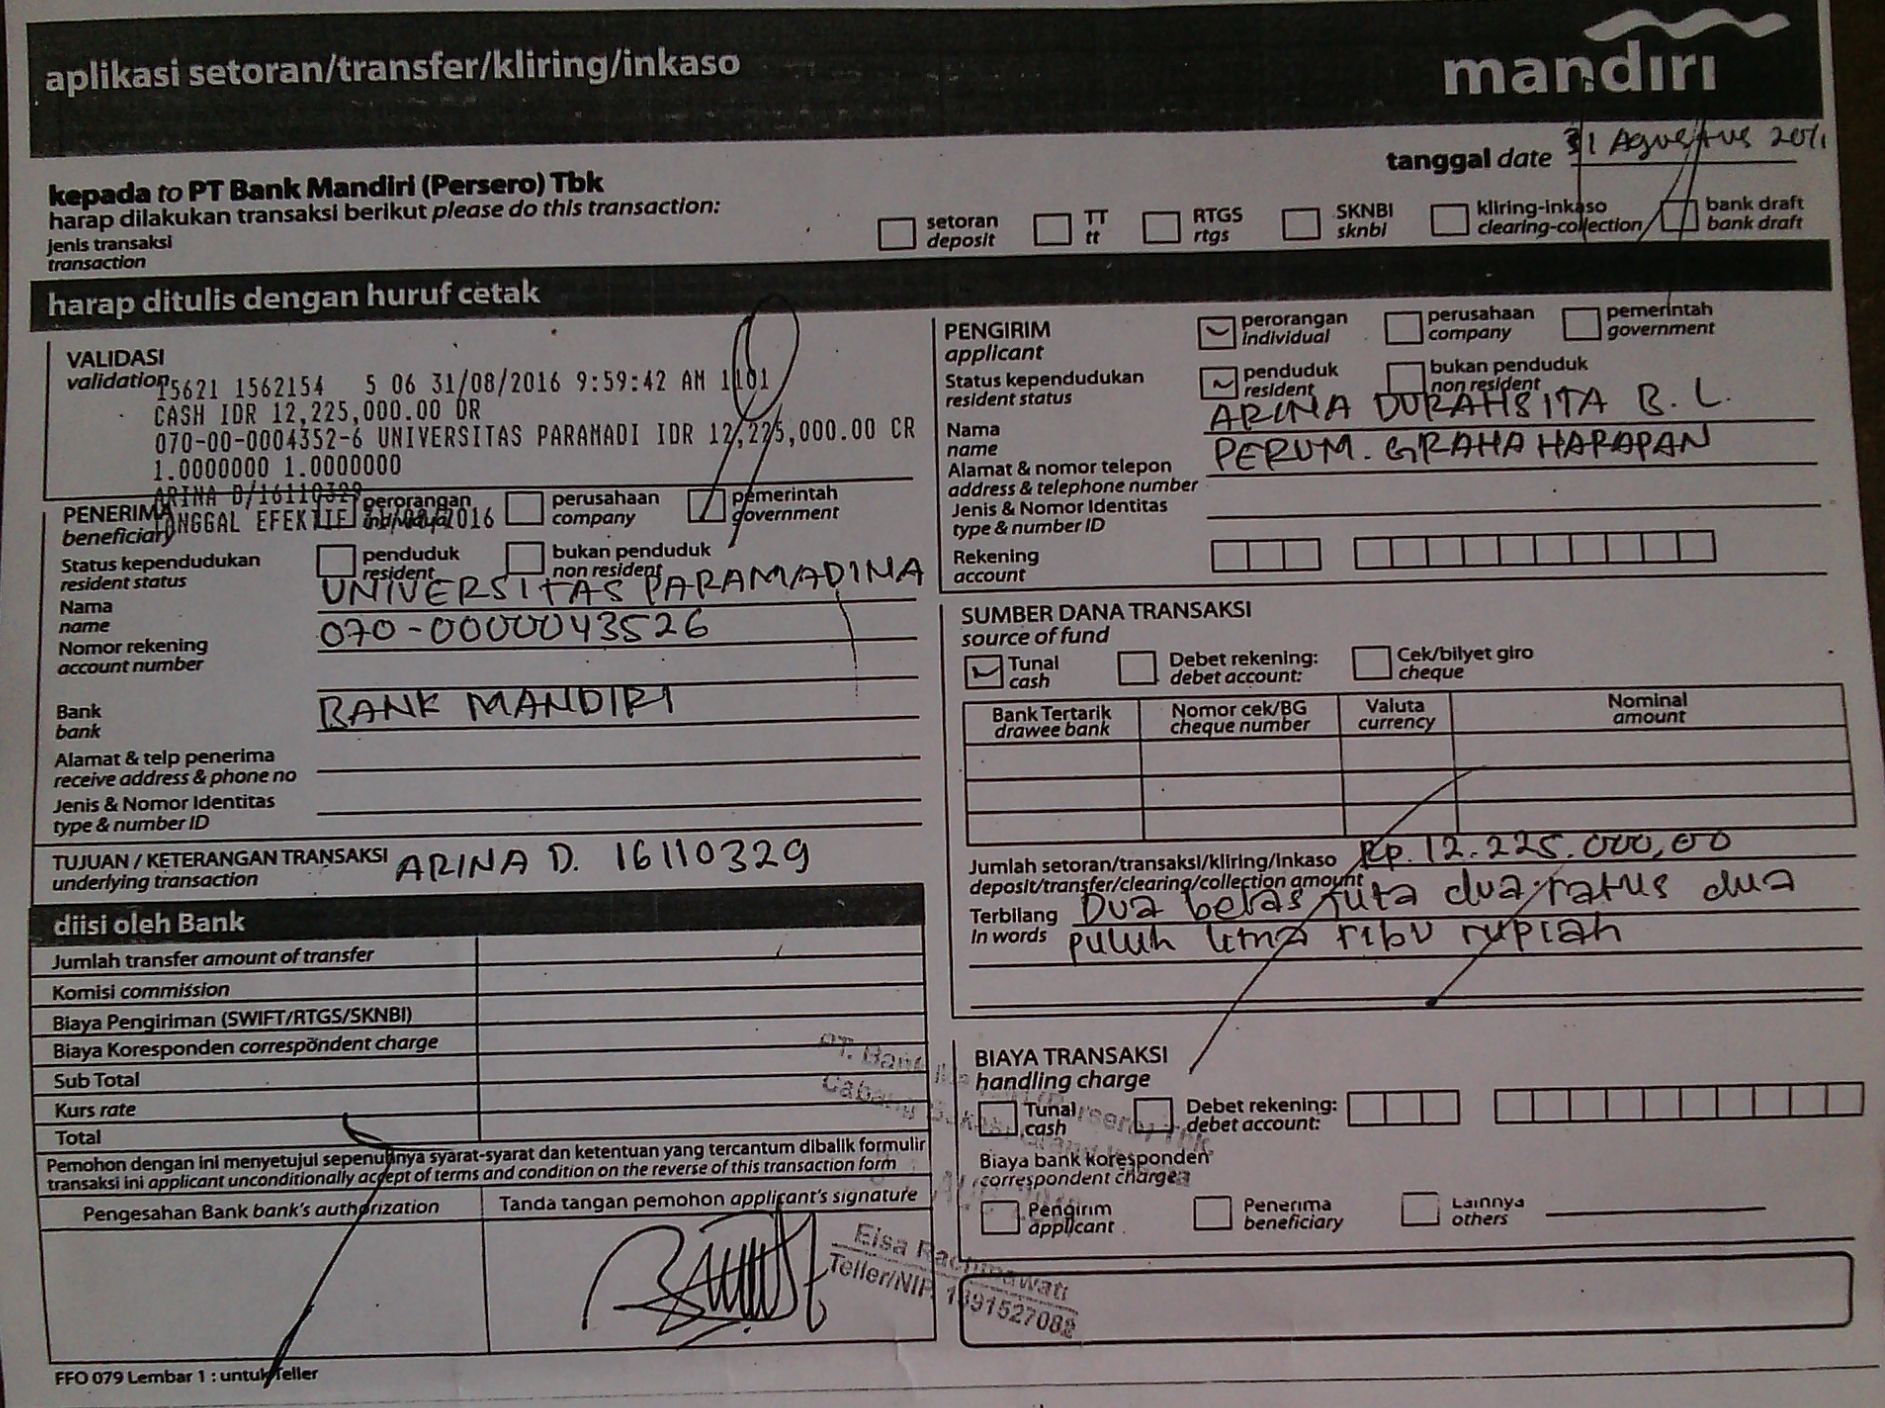 aplikasi setoran/transfer/kliring/inkaso
mandırı
tanggal date 31 Agustus 201
kepada to PT Bank Mandiri (Persero) Tbk
harap dilakukan transaksi berikut please do this transaction:
jenis transaksi
transaction
setoran
deposit
TT
tt
RTGS
rtgs
SKNBI
sknbi
kliring-inkaso
clearing-collection
bank draft
bank draft
harap ditulis dengan huruf cetak
VALIDASI
validation
15621 1562154 5 06 31/08/2016 9:59:42 AM 1101
CASH IDR 12,225,000.00 DR
070-00-0004352-6 UNIVERSITAS PARAMADI IDR 12,225,000.00 CR
1.0000000 1.0000000
ARINA D/16110329
TANGGAL EFEKTIF 31/08/2016
PENERIMA
beneficiary
perorangan
individual
perusahaan
company
pemerintah
government
Status kependudukan
resident status
penduduk
resident
bukan penduduk
non resident
Nama
name
UNIVERSITAS PARAMADINA
Nomor rekening
account number
070-0000043526
Bank
bank
BANK MANDIRI
Alamat & telp penerima
receive address & phone no
Jenis & Nomor Identitas
type & number ID
TUJUAN / KETERANGAN TRANSAKSI
underlying transaction
ARINA D. 16110329
diisi oleh Bank
Jumlah transfer amount of transfer
Komisi commission
Biaya Pengiriman (SWIFT/RTGS/SKNBI)
Biaya Koresponden correspondent charge
Sub Total
Kurs rate
Total
Pemohon dengan ini menyetujui sepenuhnya syarat-syarat dan ketentuan yang tercantum dibalik formulir
transaksi ini applicant unconditionally accept of terms and condition on the reverse of this transaction form
Pengesahan Bank bank's authorization
Tanda tangan pemohon applicant's signature
FFO 079 Lembar 1 : untuk Teller
PENGIRIM
applicant
perorangan
individual
perusahaan
company
pemerintah
government
Status kependudukan
resident status
penduduk
resident
bukan penduduk
non resident
Nama
name
ARINA DURAHSITA B. L.
Alamat & nomor telepon
address & telephone number
PERUM. GRAHA HARAPAN
Jenis & Nomor Identitas
type & number ID
Rekening
account
SUMBER DANA TRANSAKSI
source of fund
Tunai
cash
Debet rekening:
debet account:
Cek/bilyet giro
cheque
Bank Tertarik
drawee bank
Nomor cek/BG
cheque number
Valuta
currency
Nominal
amount
Jumlah setoran/transaksi/kliring/inkaso
deposit/transfer/clearing/collection amount
Rp. 12.225.000,00
Terbilang
in words
Dua belas juta dua ratus dua
puluh lima ribu rupiah
BIAYA TRANSAKSI
handling charge
Tunai
cash
Debet rekening:
debet account:
Biaya bank koresponden
correspondent charge
Pengirim
applicant
Penerima
beneficiary
Lainnya
others
PT. Bank
Cabang
Elsa Rachmawati
Teller/NIP. 1391527082